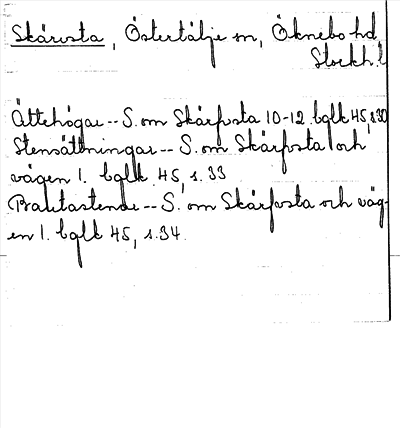 Skärvsta, Östertälje sn, Öknebo hd,
Stockh. l
Ättehögar -- S. om Skärfvsta 10-12. bglk 45, s. 30
Stensättningar -- S. om Skärfvsta och
vägen 1. bglk 45, s. 33
Bautastenar -- S. om Skärfvsta och väg-
en 1. bglk 45, s. 34.